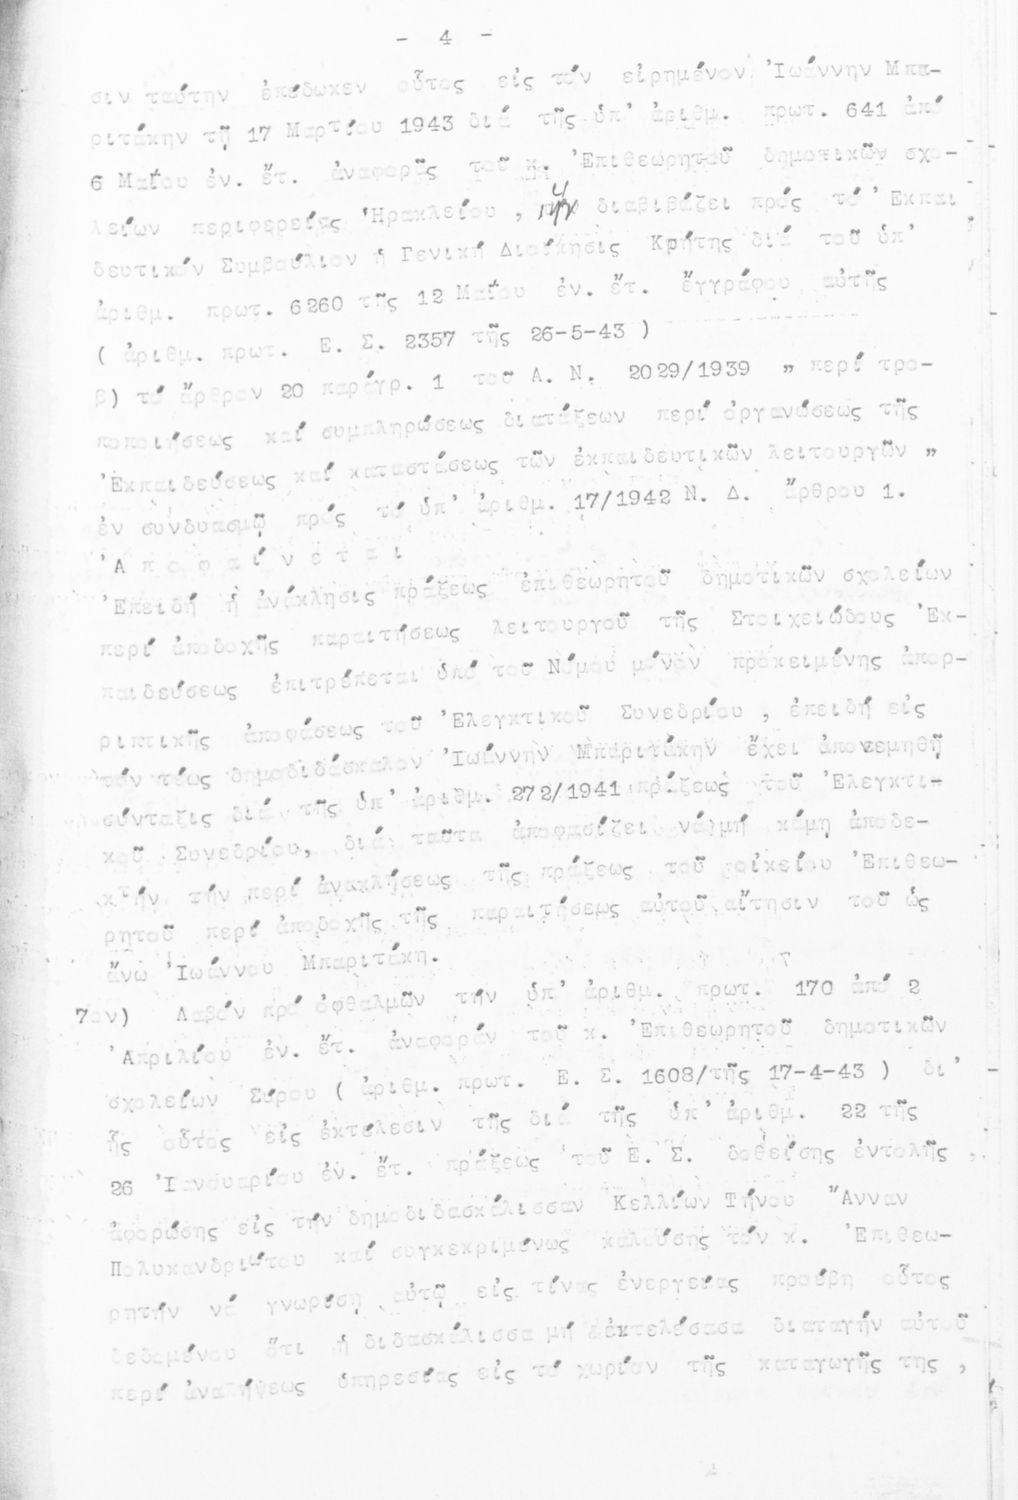 - 4 -
σιν ταύτην ἐπέδωκεν οὗτος εἰς τόν εἰρημένον Ἰωάννην Μπα-
ριτάκην τῇ 17 Μαρτίου 1943 διά τῆς ὑπ' ἀριθμ. πρωτ. 641 ἀπό
6 Μαΐου ἐν. ἔτ. ἀναφορᾶς τοῦ κ. Ἐπιθεωρητοῦ δημοτικῶν σχο-
λείων περιφερείας Ἡρακλείου , ἥν διαβιβάζει πρός τό Ἐκπαι
δευτικόν Συμβούλιον ἡ Γενική Διοίκησις Κρήτης διά τοῦ ὑπ'
ἀριθμ. πρωτ. 6260 τῆς 12 Μαΐου ἐν. ἔτ. ἔγγράφου αὐτῆς
( ἀριθμ. πρωτ. Ε. Σ. 2357 τῆς 26-5-43 )
β) τό ἄρθρον 20 παράγρ. 1 τοῦ Α. Ν. 2029/1939 " περί τρο-
ποποιήσεως καί συμπληρώσεως διατάξεων περί ὀργανώσεως τῆς
Ἐκπαιδεύσεως καί καταστάσεως τῶν ἐκπαιδευτικῶν λειτουργῶν "
ἐν συνδυασμῷ πρός τό ὑπ' ἀριθμ. 17/1942 Ν. Δ. ἄρθρου 1.
Ἀ π ο φ α ί ν ε τ α ι
Ἐπειδή ἡ ἀνάκλησις πράξεως ἐπιθεωρητοῦ δημοτικῶν σχολείων
περί ἀποδοχῆς παραιτήσεως λειτουργοῦ τῆς Στοιχειώδους Ἐκ-
παιδεύσεως ἐπιτρέπεται ὑπό τοῦ Νόμου μόνον προκειμένης ἀπορ-
ριπτικῆς ἀποφάσεως τοῦ Ἐλεγκτικοῦ Συνεδρίου , ἐπειδή εἰς
τόν τέως δημοδιδάσκαλον Ἰωάννην Μπαριτάκην ἔχει ἀπονεμηθῇ
σύνταξις διά τῆς ὑπ' ἀριθμ. 272/1941 πράξεως τοῦ Ἐλεγκτι-
κοῦ Συνεδρίου, διά ταῦτα ἀποφασίζει νά μή κάμῃ ἀποδε-
κτήν τήν περί ἀνακλήσεως τῆς πράξεως τοῦ οἰκείου Ἐπιθεω-
ρητοῦ περί ἀποδοχῆς τῆς παραιτήσεως αὐτοῦ αἴτησιν τοῦ ὡς
ἄνω Ἰωάννου Μπαριτάκη.
7ον) Λαβόν πρό ὀφθαλμῶν τήν ὑπ' ἀριθμ. πρωτ. 170 ἀπό 2
Ἀπριλίου ἐν. ἔτ. ἀναφοράν τοῦ κ. Ἐπιθεωρητοῦ δημοτικῶν
σχολείων Σύρου ( ἀριθμ. πρωτ. Ε. Σ. 1608/τῆς 17-4-43 ) δι'
ἧς οὗτος εἰς ἐκτέλεσιν τῆς διά τῆς ὑπ' ἀριθμ. 22 τῆς
26 Ἰανουαρίου ἐν. ἔτ. πράξεως τοῦ Ε. Σ. δοθείσης ἐντολῆς ,
ἀφορώσης εἰς τήν δημοδιδασκάλισσαν Κελλίων Τήνου Ἄνναν
Πολυκανδριώτου καί συγκεκριμένως καλούσης τόν κ. Ἐπιθεω-
ρητήν νά γνωρίσῃ αὐτῷ εἰς τίνας ἐνεργείας προύβη οὗτος
δεδομένου ὅτι ἡ διδασκάλισσα μή ἐκτελέσασα διαταγήν αὐτοῦ
περί ἀναλήψεως ὑπηρεσίας εἰς τό χωρίον τῆς καταγωγῆς της ,